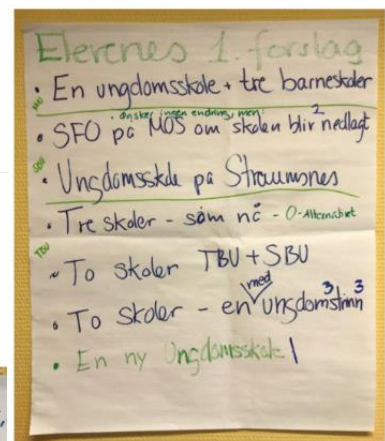 Elevenes 1. forslag
• En ungdomsskole + tre barneskoler
MØS
• ønsker ingen endring, men:
• SFO på MØS om skolen blir nedlagt 2
SBU
• Ungdomsskole på Straumsnes
• Tre skoler - som nå - 0-Alternativet
TBU
• To skoler TBU + SBU
• To skoler - en med ungdomstrinn 3 3
• En ny Ungdomsskole 1